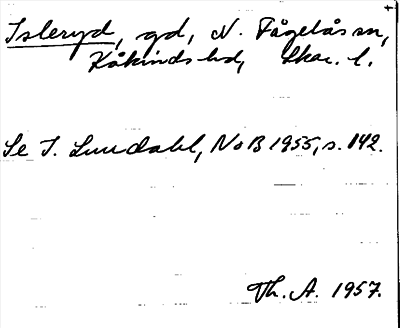 Isleryd, gd, N. Fågelås sn,
Kåkinds hd, Skar. l.
Se I. Lundahl, NoB 1955, s. 142.
Th. A. 1957.